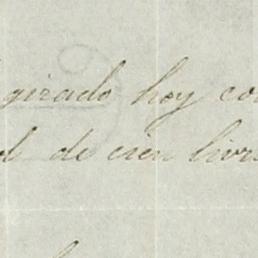 girado hoy co
de cien livr